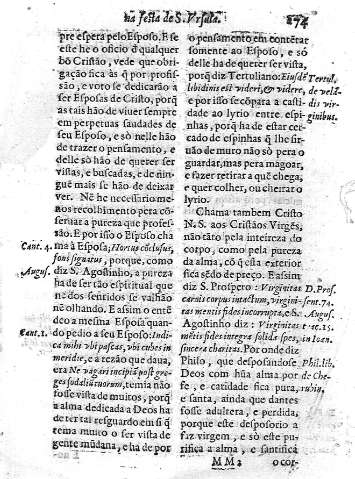 na festa de S. Vrsula. 274
pre espera pelo Esposo. E se
este he o oficio d' qualquer
bõ Cristão, vede que obri-
gação fica às q̃ por profis-
são, e voto se dedicarão a
ser Esposas de Cristo, porq̃
as tais hão de viuer sempre
em perpetuas saudades de
seu Esposo, e sò nelle hão
de trazer o pensamento, e
delle sò hão de querer ser
vistas, e buscadas, e de nin-
guẽ mais se hão de deixar
ver. Nẽ he necessario me-
nos recolhimento pera cõ-
seruar a pureza que profes-
são. E por isso o Esposo cha-
Cant. 4. ma à Esposa; Hortus cõclusus,
fons signatus, porque, como
Augus. diz S. Agostinho, a pureza
ha de ser tão espiritual que
nẽ dos sentidos se valhão
nẽ olhando. E assim o entẽ-
deo a mesma Esposa quan-
Cant. 1. do pedio a seu Esposo: Indi-
ca mihi vbi pascas, vbi cubes in
meridie, e a rezão que daua,
era Ne vagari incipiã post gre-
ges sodaliũ tuorum, temia não
fosse vista de muitos, porq̃
a alma dedicada a Deos ha
de ter tal resguardo em si q̃
tem muito a ser vista de
gente mũdana, e ha de por
o pensamento em contẽtar
somente ao Esposo, e sò
delle ha de querer ser vista,
porq̃ diz Tertuliano: Eiusdẽ Tertul.
libidinis est videri, & videre, de velã-
e por isso se cõpara a casti- dis vir-
dade ao lyrio entre espi- ginibus.
nhas, porq̃ ha de estar cer-
cado de espinhas q̃ lhe sir-
uão de muro não sò pera o
guardar, mas pera magoar,
e fazer retirar a quẽ chega,
e quer colher, ou cheirar o
lyrio.
Chama tambem Cristo
N. S. aos Cristãos Virgẽs,
não tãto pela inteireza do
corpo, como pela pureza
da alma, cõ q̃ esta exterior
fica sẽdo de preço. E assim
diz S. Prospero: Virginitas D. Pros.
carnis corpus intactum, virgini- sent. 74.
tas mentis fides incorrupta, e S. Augus.
Agostinho diz: Virginitas t ac. 15.
mẽtis fides integra solida spes, in Ioan.
sincera charitas. Por onde diz
Philo, que desposandose Phil. lib.
Deos com hũa alma por de Che-
fe, e caridade fica pura, rubin,
e santa, ainda que dantes
fosse adultera, e perdida,
porque este desposorio a
faz virgem, e sò este pu-
rifica a alma, e santifica
M M 2 o cor-